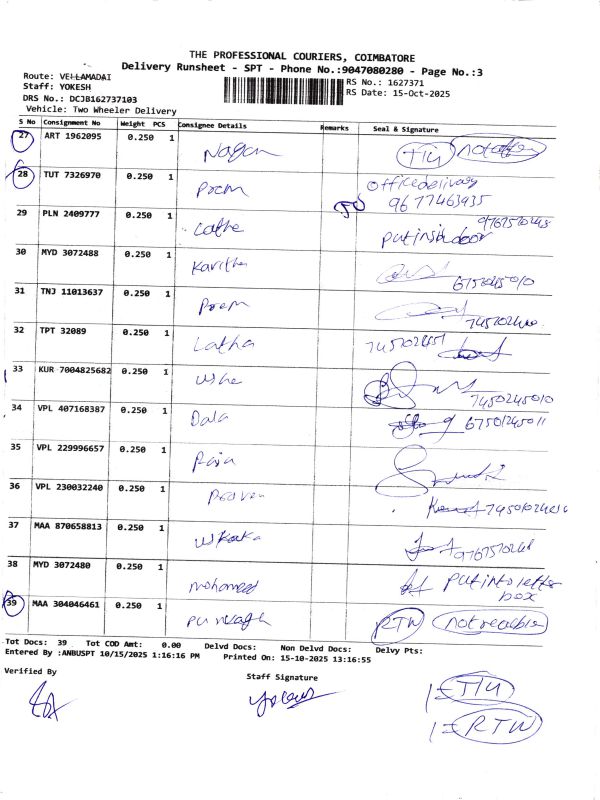 THE PROFESSIONAL COURIERS, COIMBATORE
Delivery Runsheet - SPT - Phone No.:9047080280 - Page No.:3
Route: VELLAMADAI
RS No.: 1627371
Staff: YOKESH
RS Date: 15-Oct-2025
DRS No.: DCJB162737103
Vehicle: Two Wheeler Delivery
S No Consignment No Weight PCS Consignee Details Remarks Seal & Signature
27 ART 1962095 0.250 1 Nagan
28 TUT 7326970 0.250 1 Prem office delivary
9677463935
29 PLN 2409777 0.250 1 Lathe
put insid door
30 MYD 3072488 0.250 1 Kavitha
31 TNJ 11013637 0.250 1 Prem
32 TPT 32089 0.250 1 Latha
33 KUR 7004825682 0.250 1 Usha
7450245010
34 VPL 407168387 0.250 1 Bala
67501245011
35 VPL 229996657 0.250 1 Raja
36 VPL 230032240 0.250 1 Praven
37 MAA 870658813 0.250 1
38 MYD 3072480 0.250 1 mohamed put into letter
box
39 MAA 304046461 0.250 1 RTW
Tot Docs: 39 Tot COD Amt: 0.00 Delvd Docs: Non Delvd Docs: Delvy Pts:
Entered By :ANBUSPT 10/15/2025 1:16:16 PM Printed On: 15-10-2025 13:16:55
Verified By
Staff Signature
1=
1=RTW